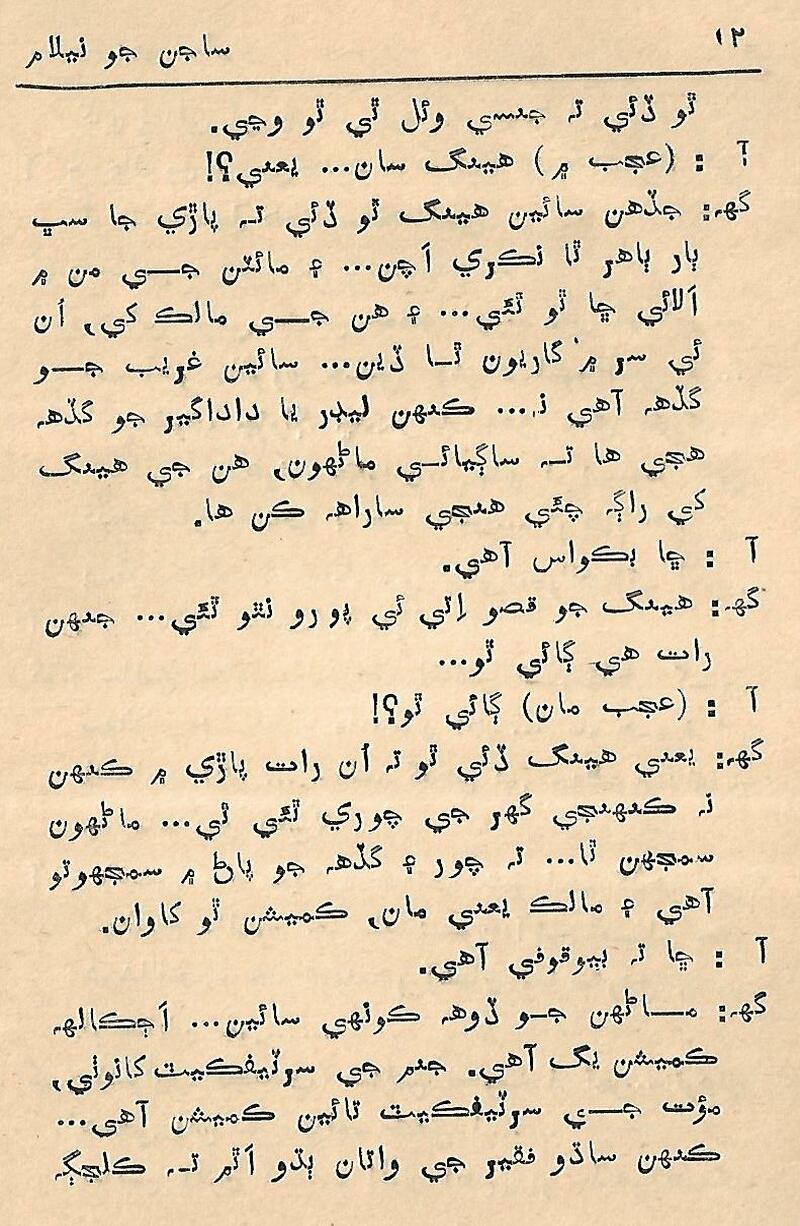 ١٢
ساجن جو نيلام
ٿو ڏئي تہ جنسي وئل ٿي ٿو وڃي.
آ : (عجب ۾) هينگ سان... يعني؟!
گهہ: جڏهن سائين هينگ ٿو ڏئي تہ پاڙي جا سڀ
ٻار ٻاهر ٿا نڪري اَچن... ۽ مائٽن جي من ۾
اَلائي ڇا ٿو ٿئي... ۽ هن جي مالڪ کي، اُن
ئي سر ۾ گاريون ٿا ڏين... سائين غريب جو
گڏهہ آهي نہ... ڪنهن ليڊر يا داداگير جو گڏهہ
هجي ها تہ ساڳيائي ماڻهون، هن جي هينگ
کي راڳہ چئي هنجي ساراهہ ڪن ها.
آ : ڇا بڪواس آهي.
گهہ: هينگ جو قصو اِتي ئي پورو نٿو ٿئي... جنهن
رات هي ڳائي ٿو...
آ : (عجب مان) ڳائي ٿو؟!
گهہ: يعني هينگ ڏئي ٿو تہ اُن رات پاڙي ۾ ڪنهن
نہ ڪنهنجي گهر جي چوري ٿئي ئي... ماڻهون
سمجهن ٿا... تہ چور ۽ گڏهہ جو پاڻ ۾ سمجهوتو
آهي ۽ مالڪ يعني مان، ڪميشن ٿو کاوان.
آ : ڇا تہ بيوقوفي آهي.
گهہ: ماڻهن جو ڏوهہ ڪونهي سائين... اَڄڪالهہ
ڪميشن يگ آهي. جنم جي سرٽيفڪيٽ کانوٺي،
مؤت جي سرٽيفڪيٽ تائين ڪميشن آهي...
ڪنهن ساڌو فقير جي واتان ٻڌو اَٿم تہ ڪلجڳہ